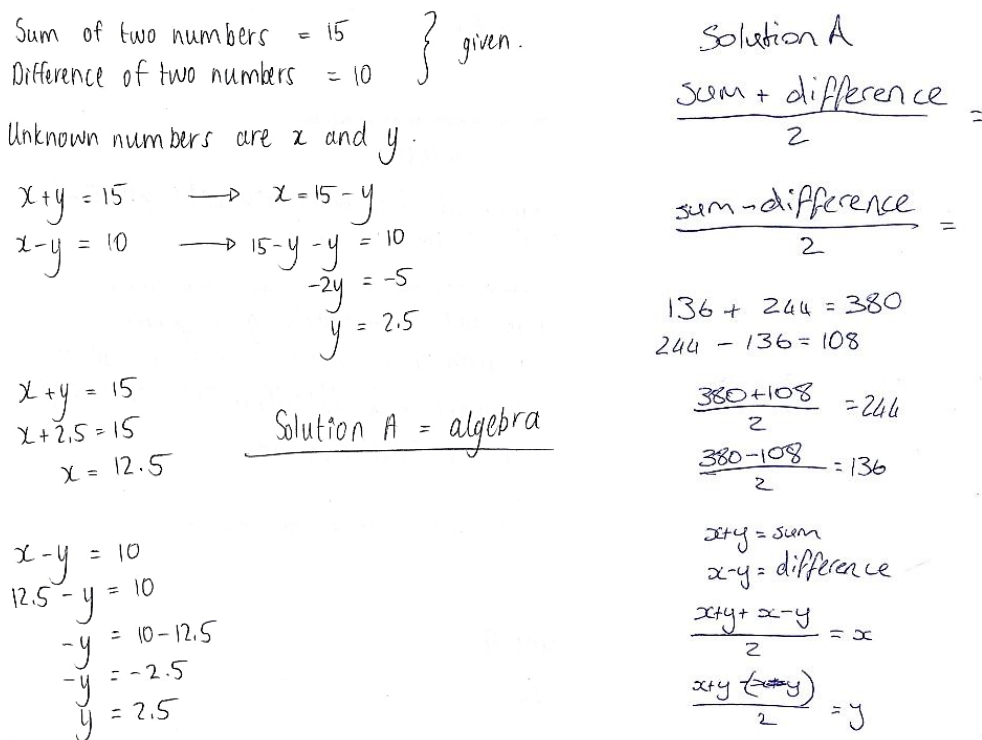 Sum of two numbers = 15
Difference of two numbers = 10
} given.
Unknown numbers are x and y.
x+y = 15 → x = 15 - y
x-y = 10 → 15-y -y = 10
-2y = -5
y = 2.5
x+y = 15
x+2.5 = 15
x = 12.5
Solution A = algebra
x-y = 10
12.5 - y = 10
-y = 10-12.5
-y = -2.5
y = 2.5
Solution A
sum + difference
2
=
sum - difference
2
=
136 + 244 = 380
244 - 136 = 108
380+108
2
= 244
380-108
2
= 136
x+y = sum
x-y = difference
x+y + x-y
2
= x
x+y -(    y)
2
= y